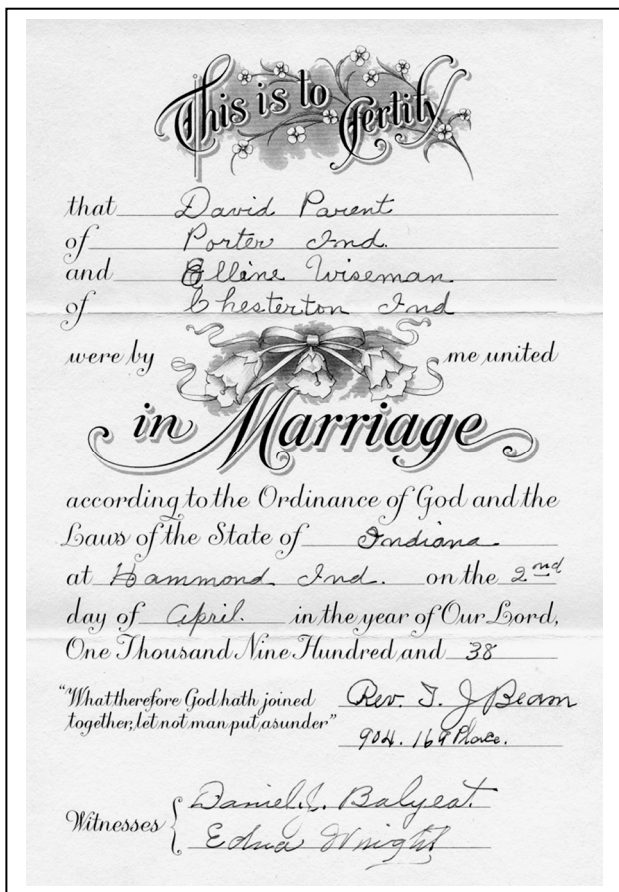 This is to Certify
that David Parent
of Porter Ind.
and Elline Wiseman
of Chesterton Ind
were by me united
in Marriage
according to the Ordinance of God and the
Laws of the State of Indiana
at Hammond Ind. on the 2nd
day of April. in the year of Our Lord,
One Thousand Nine Hundred and 38
"What therefore God hath joined
together, let not man put asunder"
Rev. T. J Beam
904. 169 Place.
Witnesses
Daniel. J. Balyeat.
Edna Wright